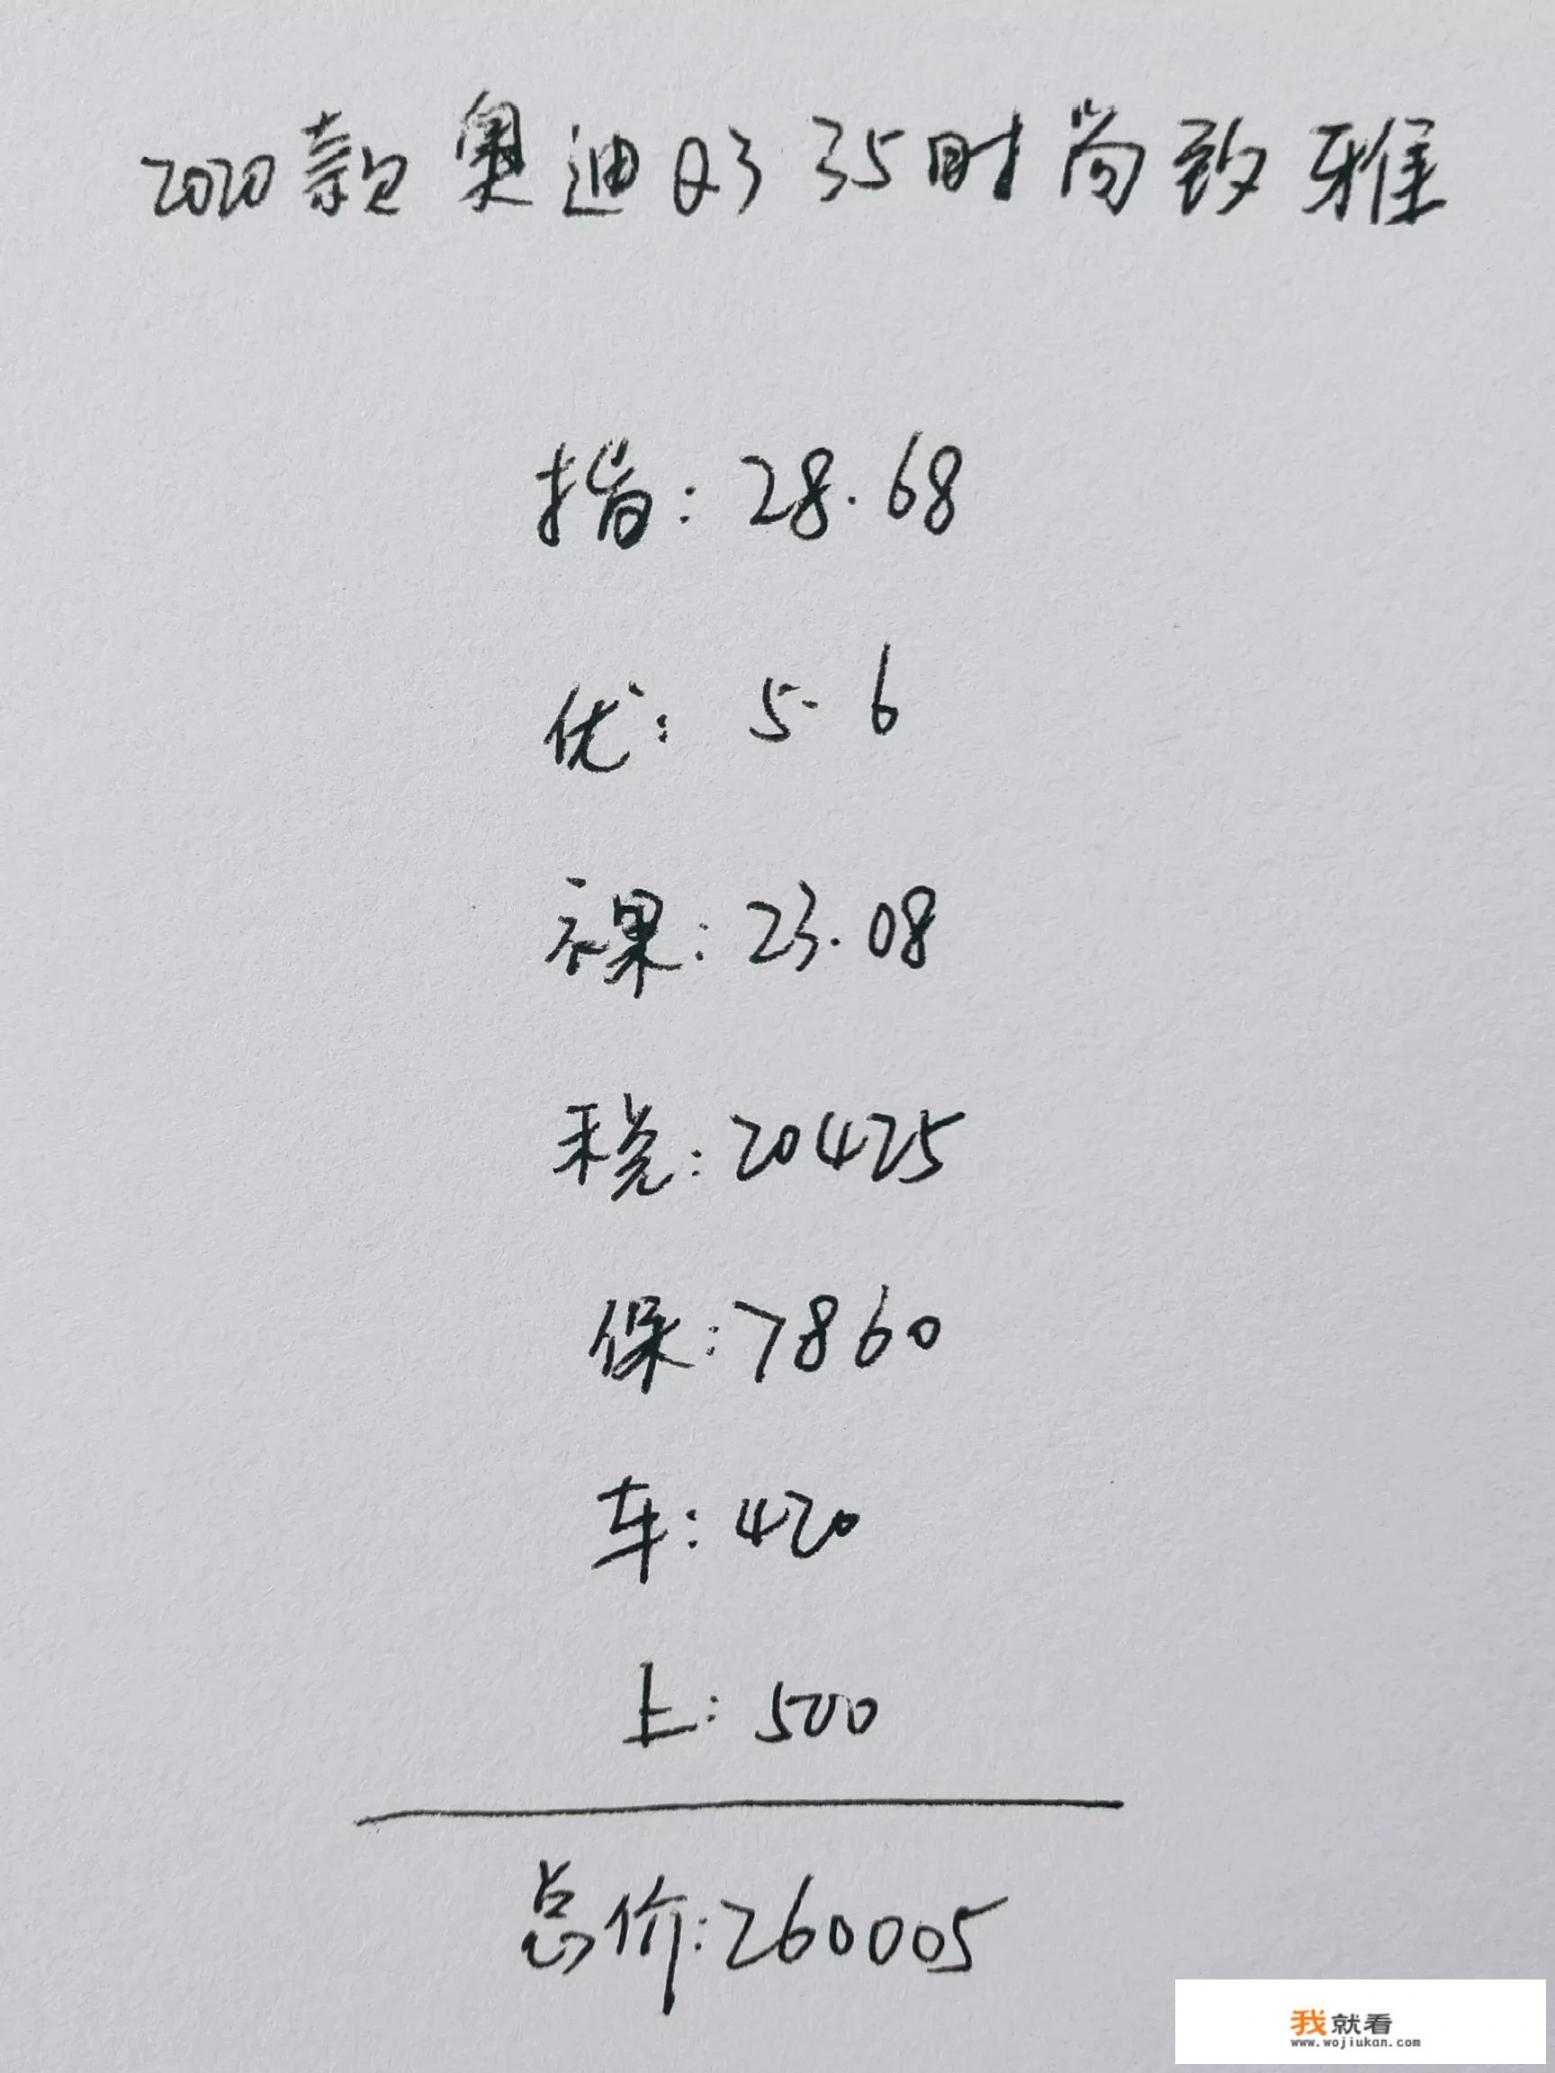 2020款奥迪Q3 35时尚致雅
指:28.68
优:5.6
裸:23.08
税:20425
保:7860
车:420
上:500
总价:260005
我就看
www.wojiukan.com